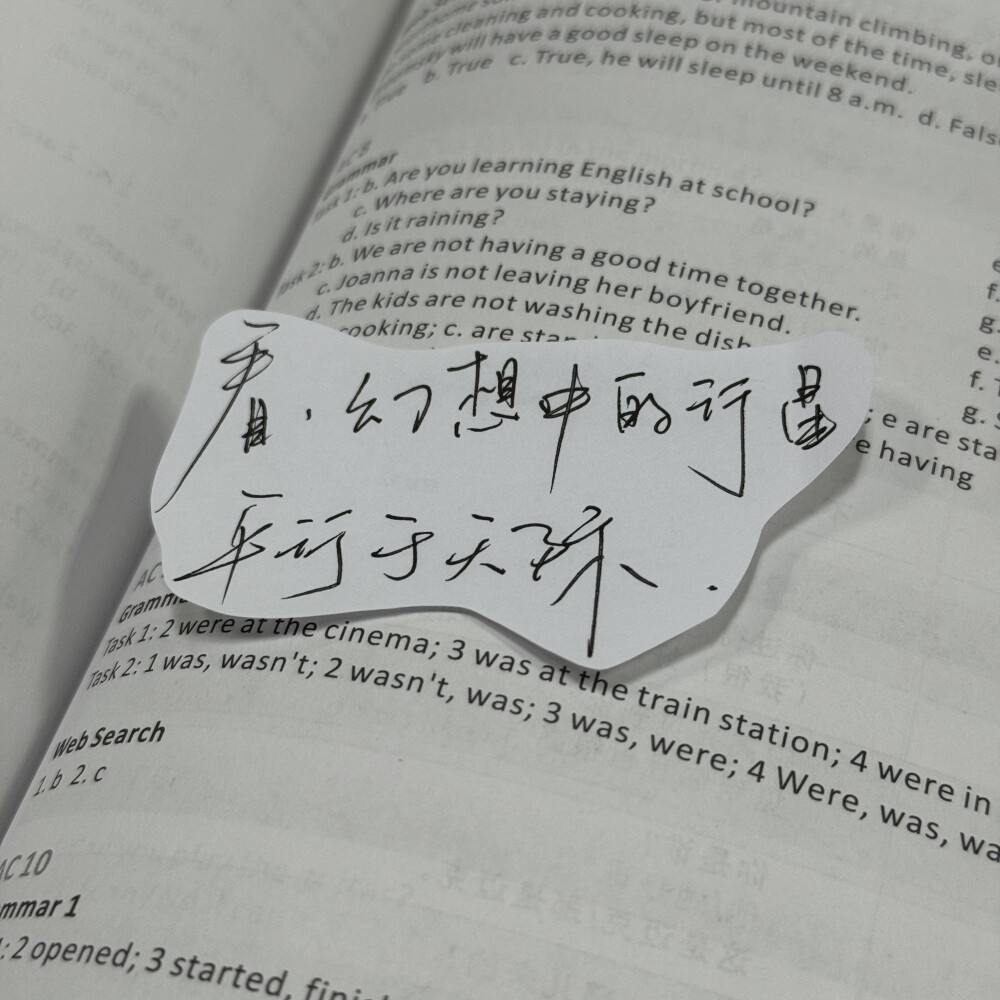 mountain climbing, o
cleaning and cooking, but most of the time, sle
will have a good sleep on the weekend.
b. True c. True, he will sleep until 8 a.m. d. Fals
AC 8
Grammar
Task 1: b. Are you learning English at school?
c. Where are you staying?
d. Is it raining?
Task 2: b. We are not having a good time together.
c. Joanna is not leaving her boyfriend.
d. The kids are not washing the dish
cooking; c. are stan
看.幻想中的行星
平行于天际.
e.
f.
g.
e.
f. T
g. S
; e are sta
e having
AC
Gramma
Task 1: 2 were at the cinema; 3 was at the train station; 4 were in
Task 2: 1 was, wasn't; 2 wasn't, was; 3 was, were; 4 Were, was, wa
Web Search
1. b 2. c
AC 10
mmar 1
1: 2 opened; 3 started, finis